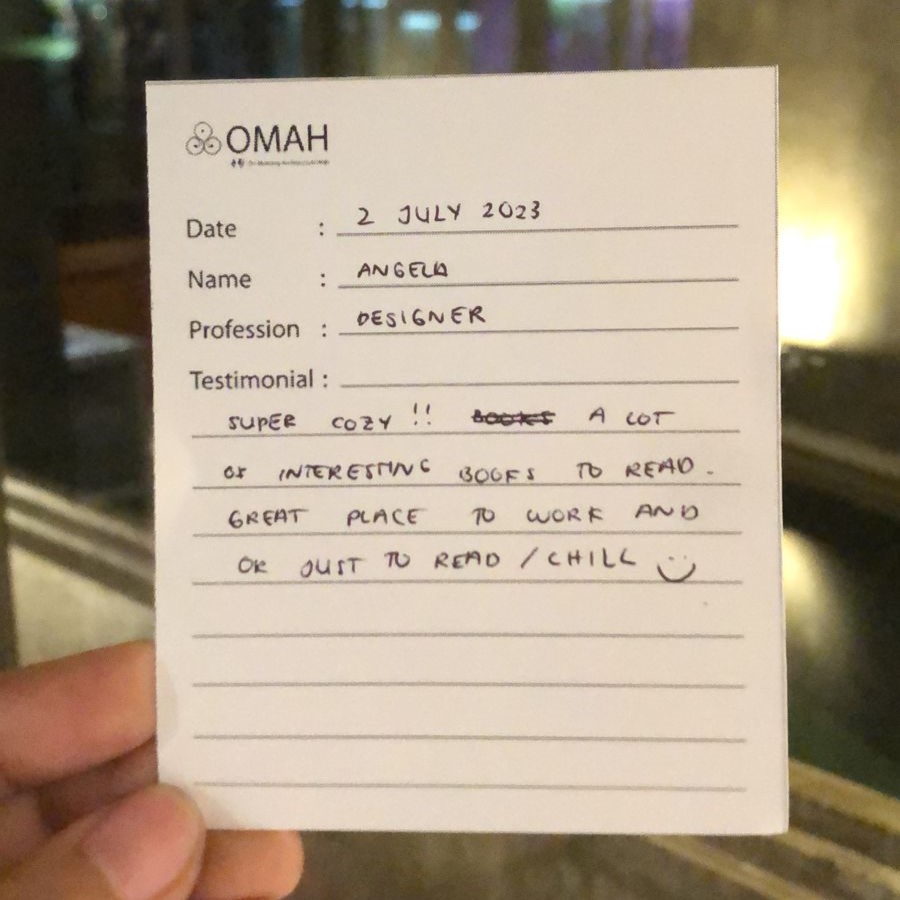 OMAH
Date : 2 JULY 2023
Name : ANGELA
Profession : DESIGNER
Testimonial :
SUPER COZY !! BOOKS A LOT
OF INTERESTING BOOKS TO READ.
GREAT PLACE TO WORK AND
OR JUST TO READ / CHILL